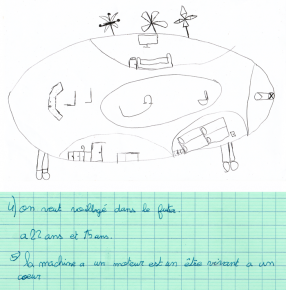 4) on veut voyagé dans le futur.
a 22 ans et 15 ans.
5) la machine a un moteur est en être vivant a un
coeur